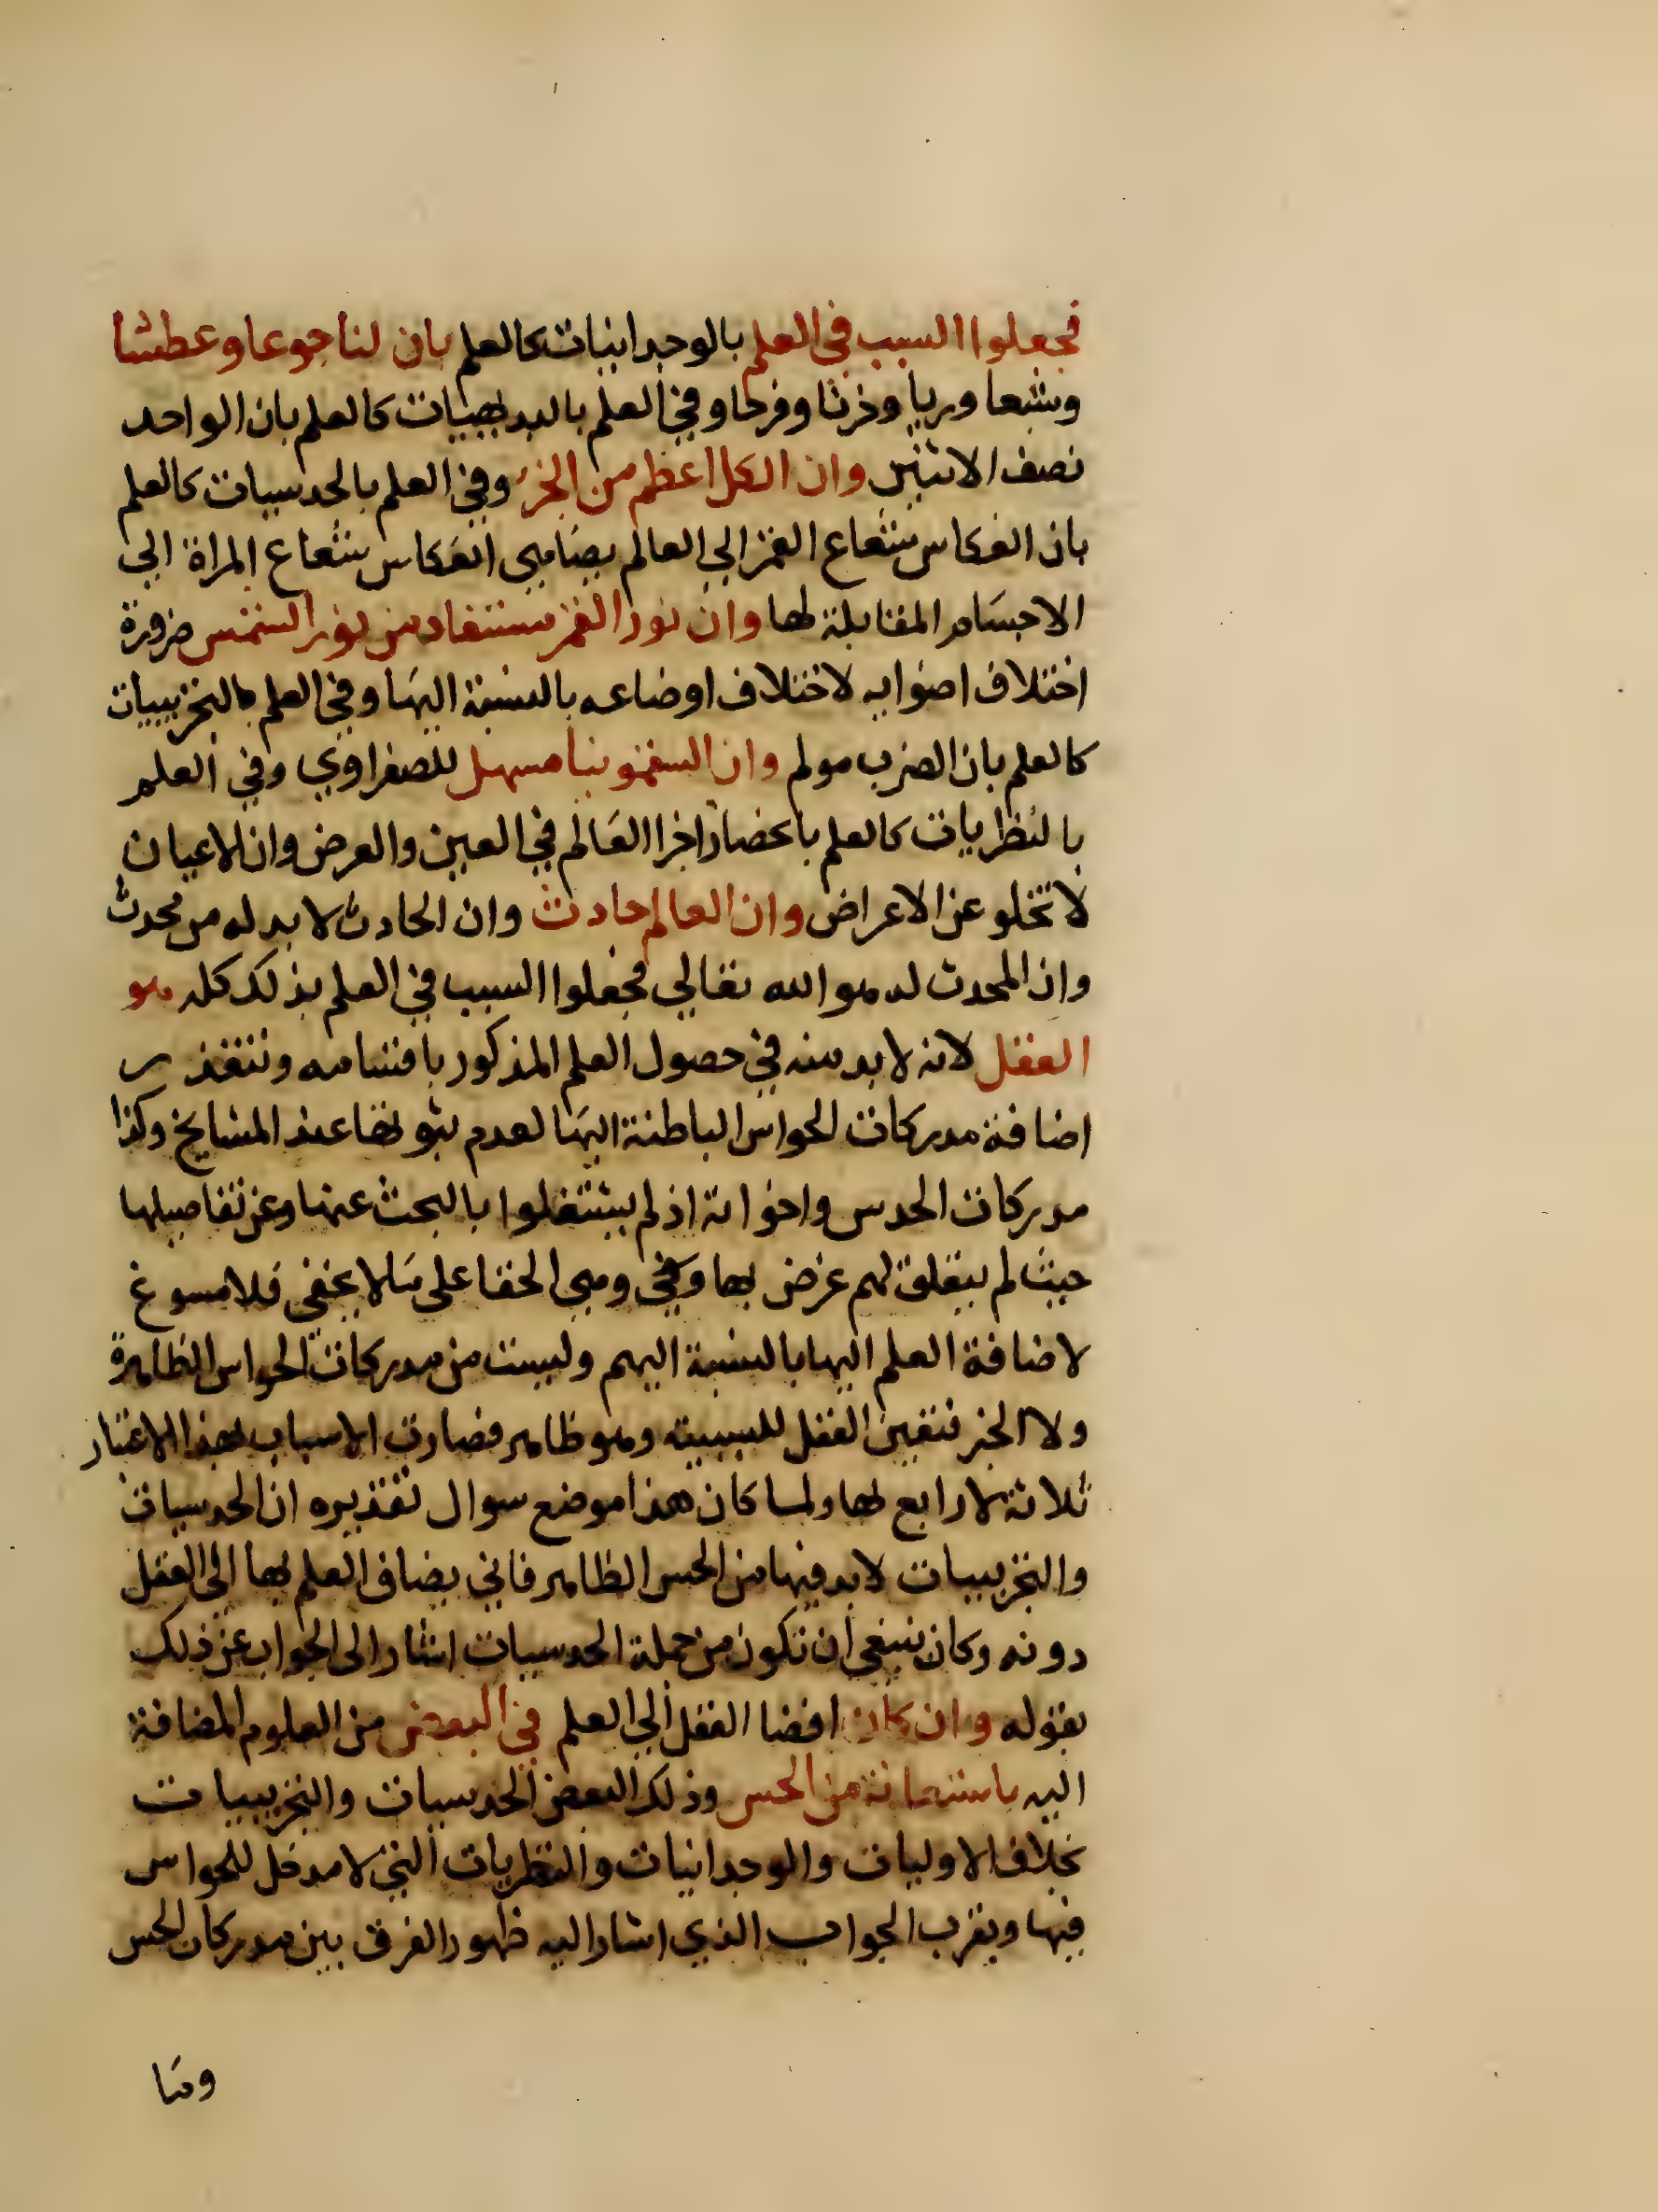 فجعلوا السبب في العلم بالوجدانيات كالعلم بان لنا جوعا وعطشا
وشبعا وريا وحزنا وفرحا وفي العلم بالبديهيات كالعلم بان الواحد
نصف الاثنين وان الكل اعظم من الجزء وفي العلم بالحدسيات كالعلم
بان انعكاس شعاع القمر الي العالم يضاهي انعكاس شعاع المراة الي
الاجسام المقابلة لها وان نور القمر مستفاد من نور الشمس ضرورة
اختلاف اضوايه لاختلاف اوضاعه بالنسبة اليها وفي العلم بالتجربيبات
كالعلم بان الضرب مولم وان السقمونيا مسهل للصفراوي وفي العلم
بالنظريات كالعلم بانحصار اجزا العالم في العين والعرض وان الاعيان
لا تخلو عن الاعراض وان العالم حادث وان الحادث لا بد له من محدث
وان المحدث له هو الله تعالي فجعلوا السبب في العلم بذلك كله هو
العقل لانه لا بد منه في حصول العلم المذكور باقسامه وتتعذر
اضافة مدركات الحواس الباطنة اليها لعدم ثبوتها عند المشايخ وكذا
مدركات الحدس واخواته اذ لم يشتغلوا بالبحث عنها وعن تفاصيلها
حيث لم يتعلق لهم غرض بها وهي وهي الخفا على ما لا يخفى فلا مسوغ
لاضافة العلم اليها بالنسبة اليهم وليست من مدركات الحواس الظاهرة
ولا الخبر فتعين العقل للسببية وهو ظاهر فصارت الاسباب بهذا الاعتبار
ثلاثة لا رابع لها ولما كان هذا موضع سوال تقديره ان الحدسيات
والتجربيبات لا بد فيها من الحس الظاهر فاني يضاف العلم بها الي العقل
دونه وكان ينبغي ان تكون من جملة الحدسيات اشار الى الجواب عن ذلك
بقوله وان كان افضا العقل الي العلم في البعض من العلوم المضافة
اليه باستعانة من الحس وذلك البعض الحدسيات والتجربيبات
بخلاف الاوليات والوجدانيات والنظريات التي لا مدخل للحواس
فيها ويقرب الجواب الذي اشار اليه ظهور الفرق بين مدركات الحس
وما